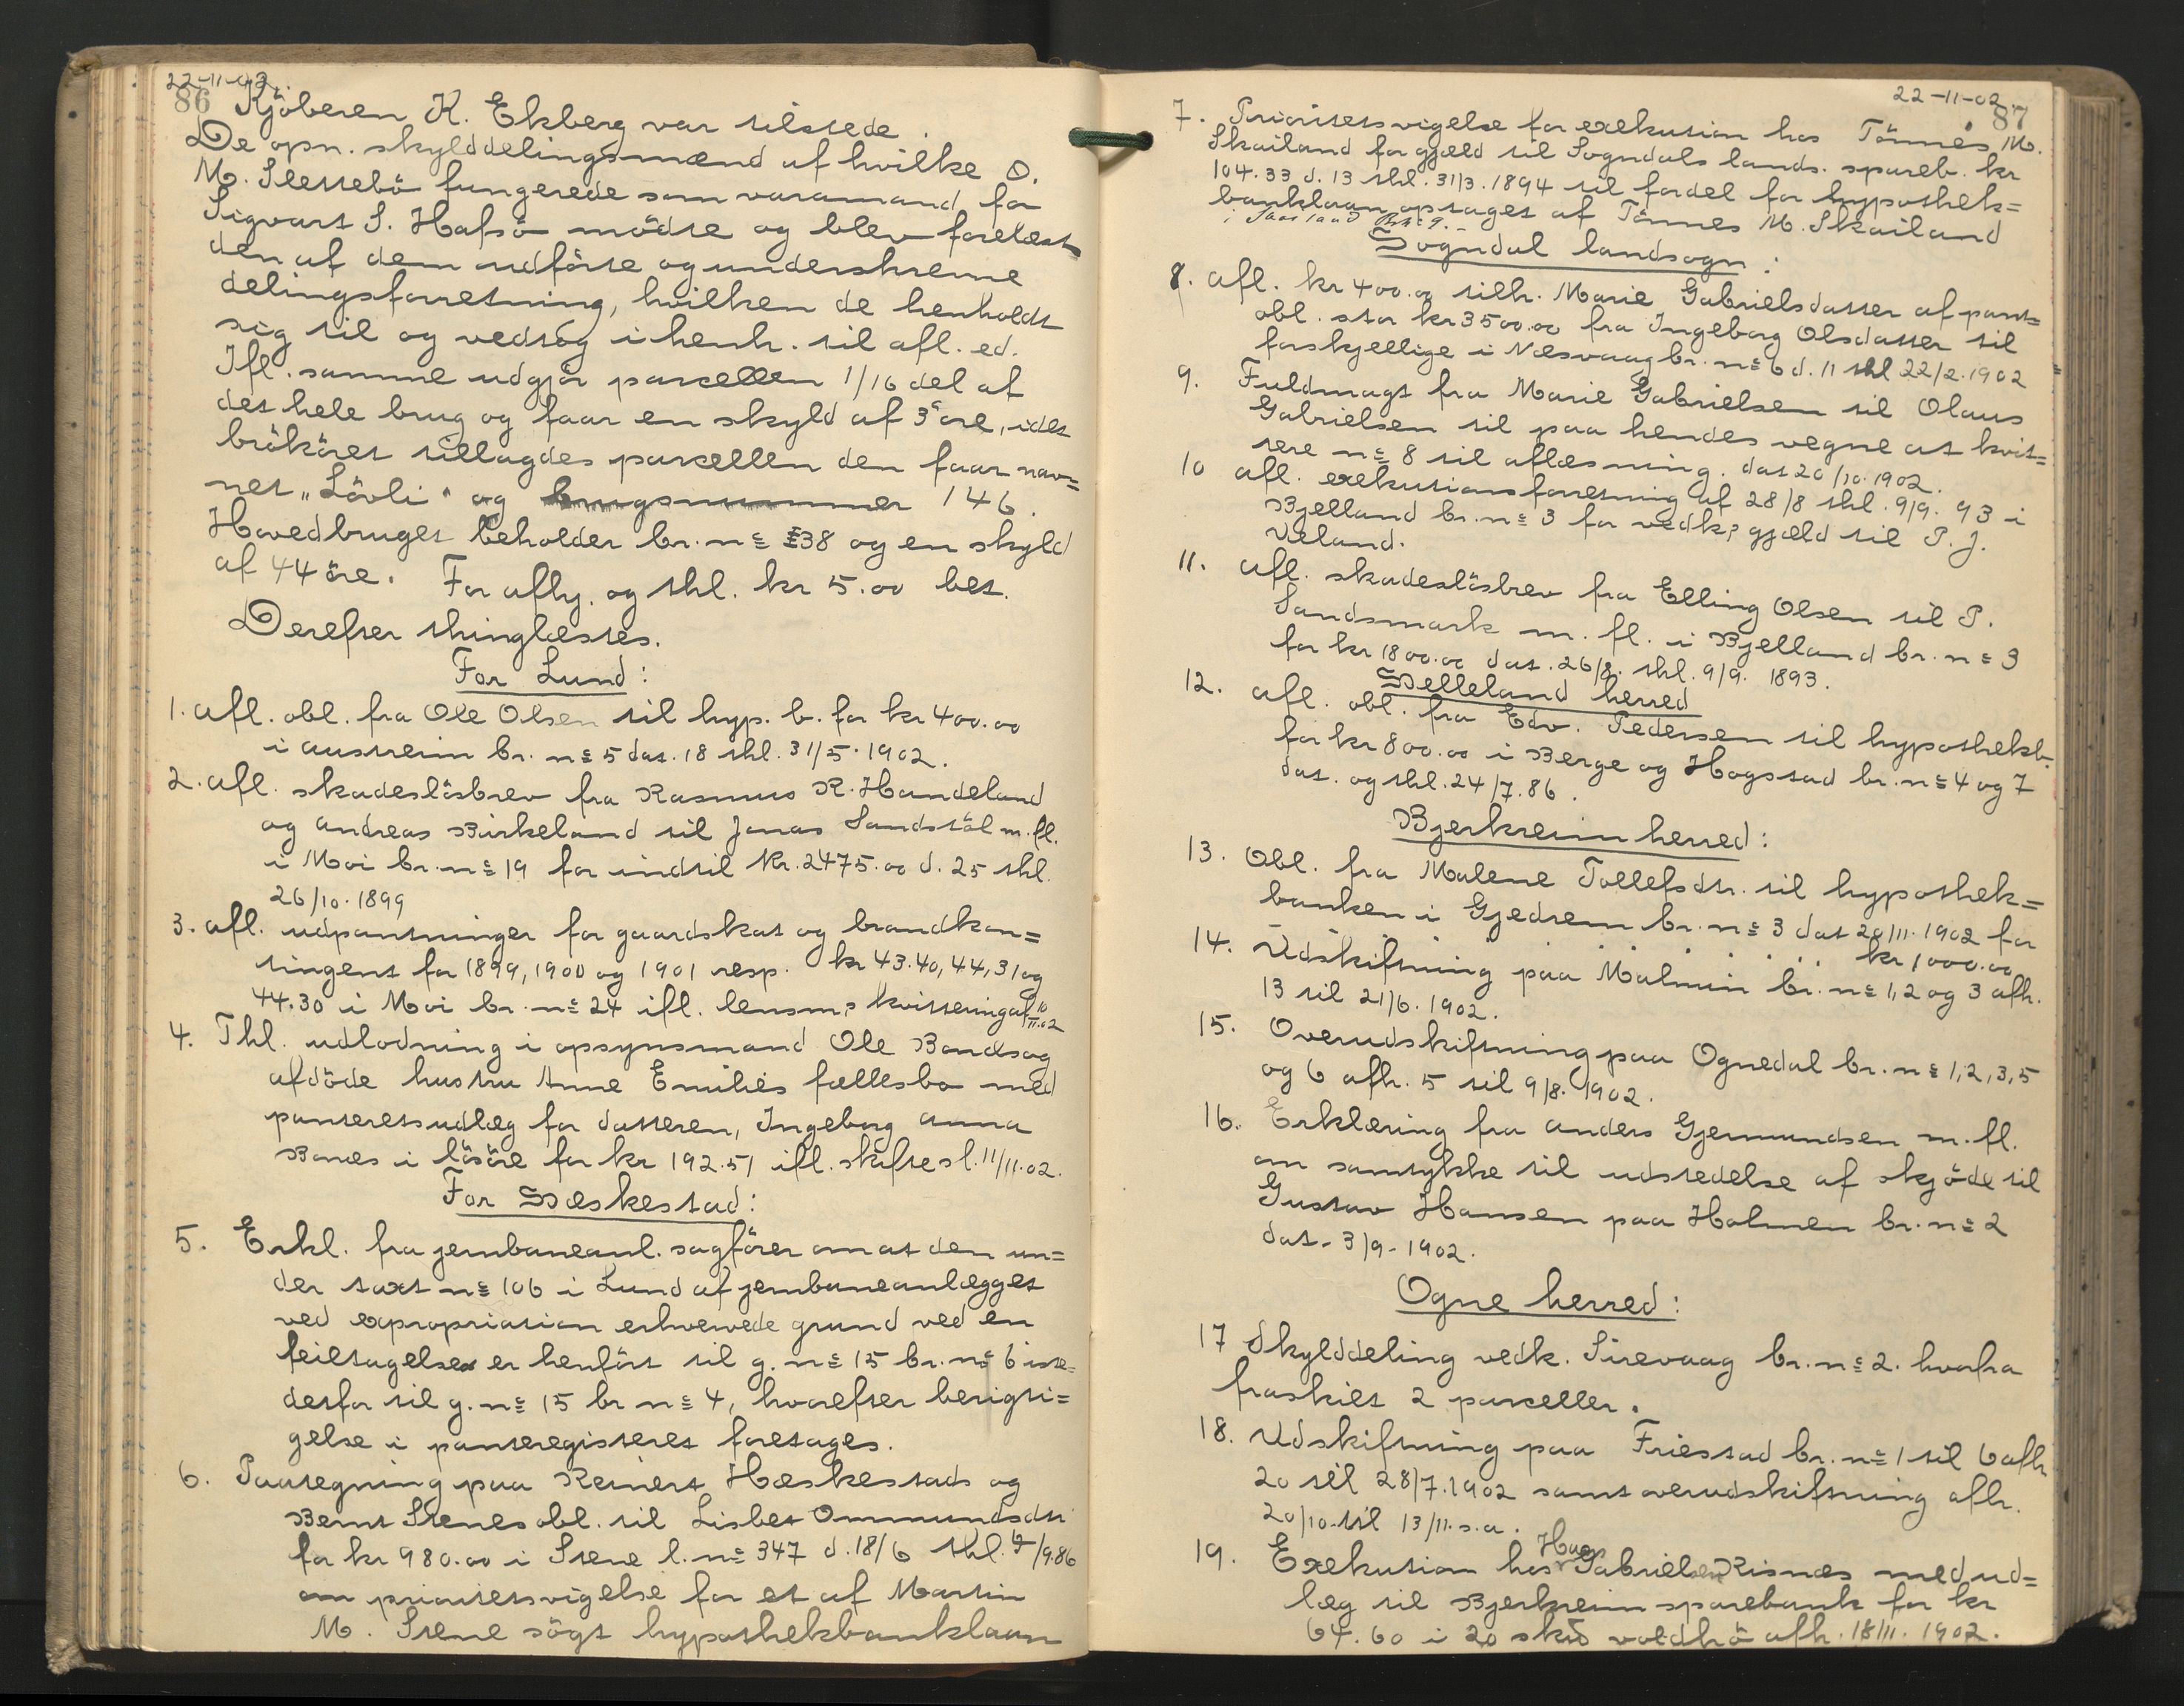 22-11-02.
86 Kjöberen K. Ekberg var tilstede.
De opn. skylddelingsmænd af hvilke O.
M. Slettebö fungerede som varamand for
Sigvart S. Hafsö mödte og blev forelæst
den af dem udförte og underskrevne
delingsforretning, hvilken de henholdt
sig til og vedtog i henh. til afl. ed.
Ifl. samme udgjör parcellen 1/16 del af
det hele brug og faar en skyld af 3 öre, idet
brököret tillagdes parcellen den faar nav=
net „Lövli" og brugsnummer 146.
Hovedbruget beholder br. no 38 og en skyld
af 44 öre. For afhj. og thl. kr 5.00 bet.
Derefter thinglæstes.
For Lund:
1. Afl. obl. fra Ole Olsen til hyp. b. for kr 400.00
i Austreim br. no 5 dat. 18 thl. 31/5. 1902.
2. Afl. skadeslösbrev fra Rasmus R. Handeland
og Andreas Birkeland til Jonas Sandstöl m. fl.
i Moi br. no 19 for indtil kr. 2475.00 d. 25 thl.
26/10. 1899
3. Afl. udpantninger for gaardskat og brandkon=
tingent for 1899, 1900 og 1901 resp. kr 43.40, 44,31 og
44.30 i Moi br. no 24 ifl. lensm.s kvittering af 10/11.02
4. Thl. udlodning i opsynsmand Ole Bandsog
afdöde hustru Anne Emilies fællesbo med
panteretsudlæg for datteren, Ingeborg Anna
i lösöre for kr 192.51 ifl. skiftesl. 11/11.02.
For Hæskestad:
5. Erkl. fra jernbaneanl. sagförer om at den un=
der taxt no 106 i Lund af jernbaneanlægget
ved expropriation erhvervede grund ved en
feiltagelse er henfört til g. no 15 br. no 6 iste-
detfor til g. no 15 br no 4, hvorefter berigti=
gelse i panteregisteret foretages.
6. Paategning paa Reinert Hæskestads og
Bernt Stenes obl. til Lisbet Ommundsdtr
for kr 980.00 i Stene l. no 347 d. 18/6 thl. 9/9.86
om prioritetsvigelse for et af Martin
M. Stene sögt hypothekbanklaan
22-11-02.
87
7. Prioritetsvigelse for exekution hos Tönnes M.
Skailand for gjæld til Sogndals lands. spareb. kr
104.33 d. 13 thl. 31/3. 1894 til fordel for hypothek=
banklaan optaget af Tönnes M. Skailand
i Saasland
Sogndal landsogn:
8. Afl. kr 400.00 tilh. Marie Gabrielsdatter af pant=
obl. stor kr 3500.00 fra Ingeborg Olsdatter til
forskjellige i Næsvaag br. no 6 d. 11 thl 22/2. 1902
9. Fuldmagt fra Marie Gabrielsen til Olaus
Gabrielsen til paa hendes vegne at kvit=
tere no 8 til aflæsning. dat 20/10. 1902.
10 Afl. exekutionsforretning af 28/8 thl. 9/9. 93 i
Bjelland br. no 3 for vedk.s gjæld til P. J.
Ueland.
11. Afl. skadeslösbrev fra Elling Olsen til P.
Sandsmark m. fl. i Bjelland br. no 3
for kr 1800.00 dat. 26/8. thl. 9/9. 1893.
Helleland herred
12. Afl. obl. fra Edv. Pedersen til hypothekb.
for kr 800.00 i Berge og Hogstad br. no 4 og 7
dat. og thl. 24/7.86.
Bjerkreim herred:
13. Obl. fra Malene Tollefsdtr. til hypothek=
banken i Gjedrem br. no 3 dat 20/11. 1902 for
kr 1000.00
14. Udskiftning paa Malmin br. no 1,2 og 3 afh.
13 til 21/6. 1902.
15. Overudskiftning paa Ognedal br. no 1,2,3,5
og 6 afh. 5 til 9/8. 1902.
16. Erklæring fra Anders Gjermundsen m. fl.
om samtykke til udstedelse af skjöde til
Gustav Hansen paa Holmen br. no 2
dat. 3/9. 1902.
Ogne herred:
17 Skylddeling vedk. Sirevaag br. no 2. hvorfra
fraskilt 2 parceller.
18. Udskiftning paa Friestad br. no 1 til 6 afh
20 til 28/7. 1902 samt overudskiftning afh.
20/10. til 13/11. s.a.
19. Exekution hos Gabrielsen Risnæs med ud=
læg til Bjerkreim sparebank for kr
64.60 i 20 afh. 18/11. 1902.